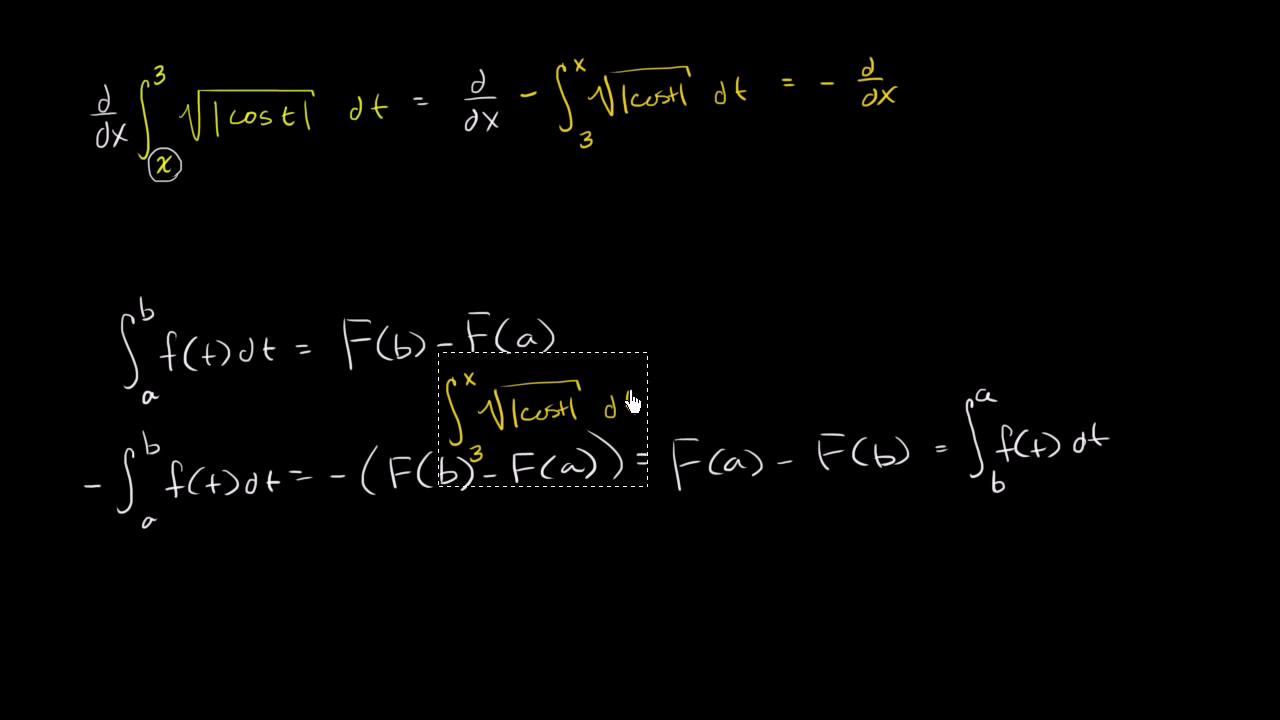 d/dx ∫_x^3 √|cos t| dt = d/dx - ∫_3^x √|cos t| dt = - d/dx
∫_a^b f(t) dt = F(b) - F(a)
∫_3^x √|cos t| d
- ∫_a^b f(t) dt = - (F(b) - F(a)) = F(a) - F(b) = ∫_b^a f(t) dt